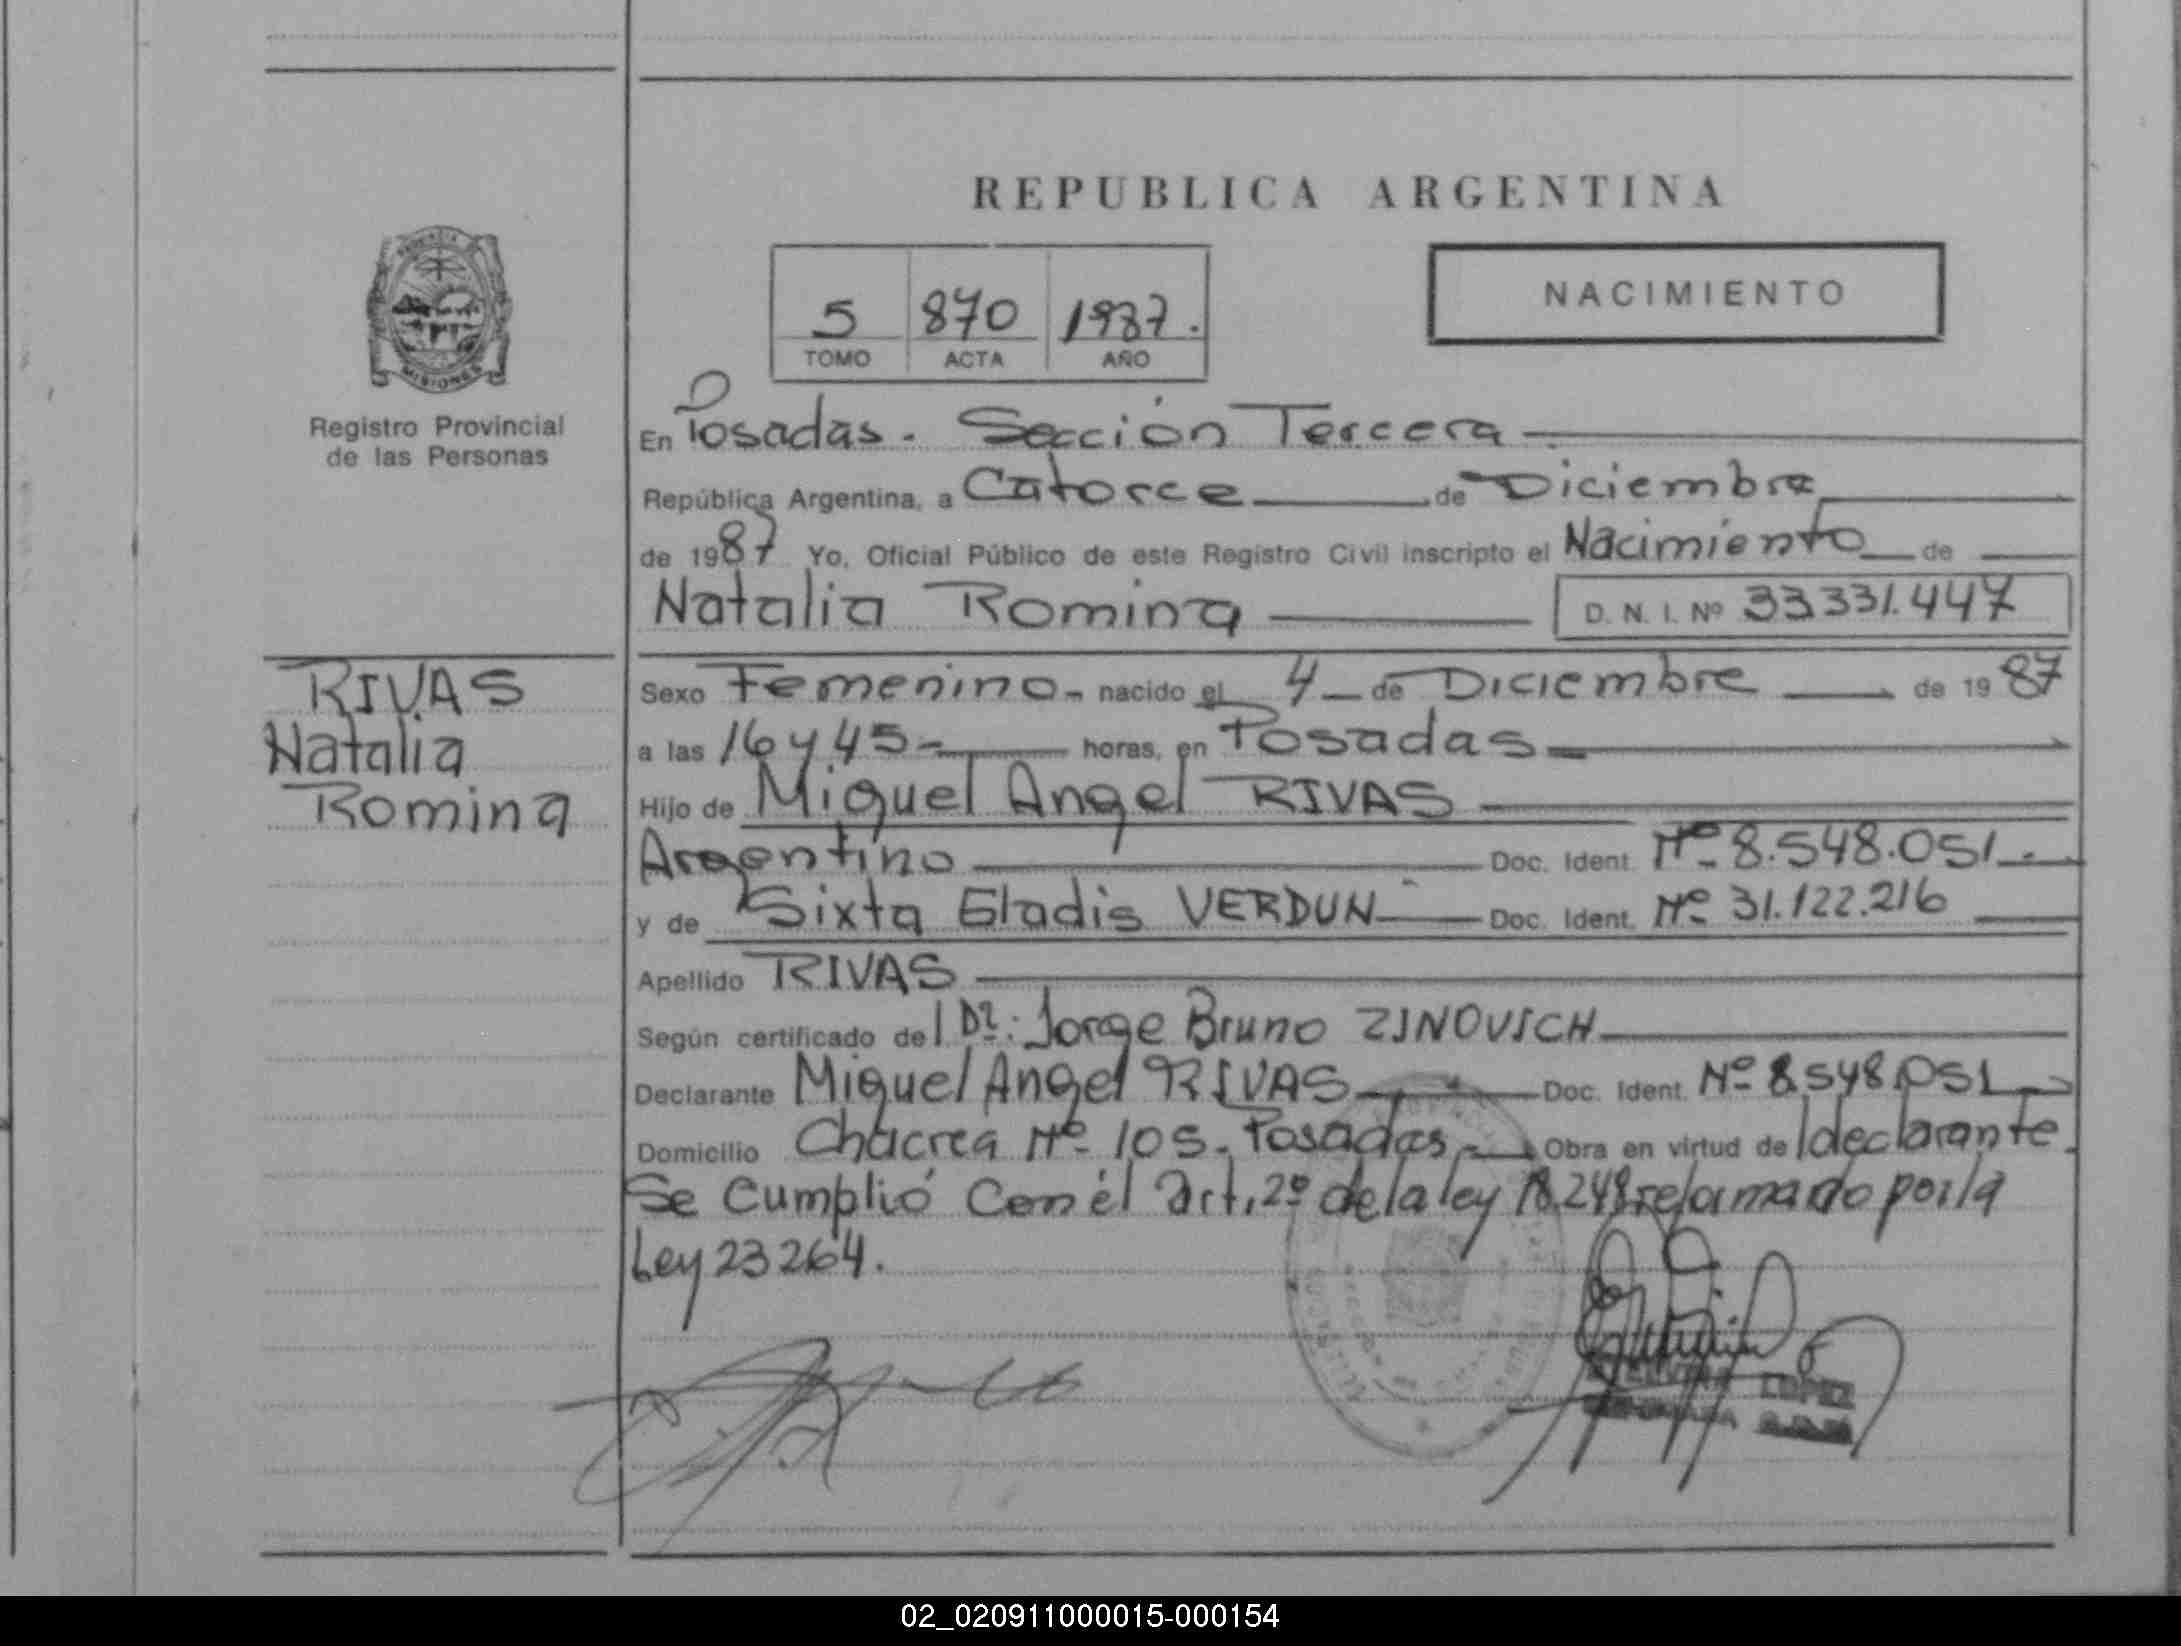 REPUBLICA ARGENTINA
NACIMIENTO
5 870 1987.
TOMO ACTA AÑO
MISIONES
Registro Provincial
de las Personas
En Posadas. Sección Tercera
República Argentina, a Catorce de Diciembre
de 1987 Yo, Oficial Público de este Registro Civil inscripto el Nacimiento de
Natalia Romina D. N. I. Nº 33331.447
RIVAS
Natalia
Romina
Sexo Femenino- nacido el 4 de Diciembre de 1987
a las 16 y 45- horas, en Posadas
Hijo de Miguel Angel RIVAS
Argentino Doc. Ident. Nº 8.548.051.
y de Sixta Gladis VERDUN Doc. Ident. Nº 31.122.216
Apellido RIVAS
Según certificado del Dr: Jorge Bruno ZINOVICH
Declarante Miguel Angel RIVAS Doc. Ident. Nº 8.548.051
Domicilio Chacrea Nº 105. Posadas. Obra en virtud de l declarante.
Se Cumplió Con él art. 2º de la ley 18.248 reformado por la
Ley 23264.
LOPEZ
02_020911000015-000154